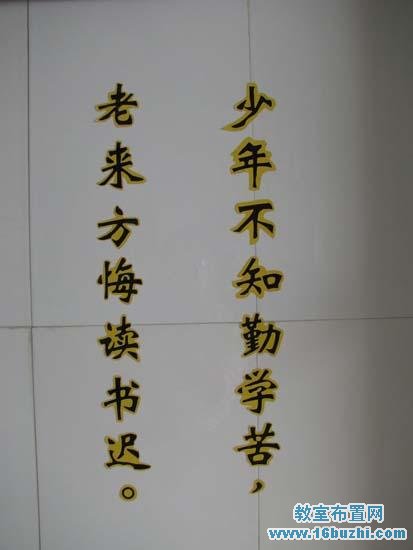 少年不知勤学苦，
老来方悔读书迟。
教室布置网
www.16buzhi.com